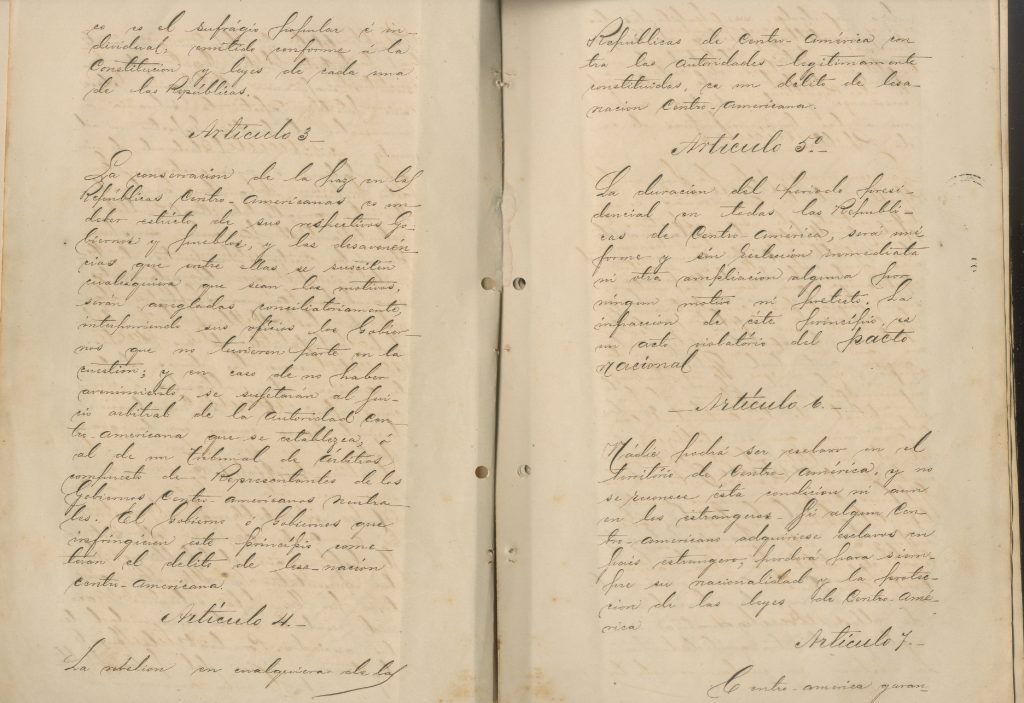 co es el sufrágio popular é in-
dividual, emitido conforme á la
Constitución y leyes de cada una
de las Repúblicas.
Artículo 3_
La conservacion de la paz en las
Repúblicas Centro-Americanas es un
deber estricto de sus respectivos Go-
biernos y pueblos, y las desavenén
cias que entre ellas se susciten
cualesquiera que sean los motivos,
serán arregladas conciliatoriamente,
interponiendo sus oficios los Gobier
nos que no tuvieren parte en la
cuestion; y en caso de no haber
avenimiento, se sujetarán al jui-
cio arbitral de la Autoridad Cen-
tro-americana que se establezca, ó
al de un tribunal de árbitros
compuesto de Representantes de los
Gobiernos Centro-americanos neutra
les. El Gobierno ó Gobiernos que
infringieren este principio come-
terán el delito de lesa-nacion
Centro-Americana.
Artículo 4.-
La rebelion en cualquiera de las
Repúblicas de Centro-América con
tra las autoridades legítimamente
constituidas, es un delito de lesa-
nacion Centro-Americana.
Artículo 5º-
La duracion del período presi-
dencial en todas las Repúbli-
cas de Centro-América, será uni
forme y sin reeleccion inmediata
ni otra ampliacion alguna por
ningun motivo ni pretesto. La
infraccion de éste princípio, es
un acto violatório del pacto
nacional
- Artículo 6.-
Nádie podrá ser esclavo en el
território de Centro-América, y no
se reconoce ésta condicion ni aun
en los estrangeros. Si algun Cen-
tro-americano adquiriese esclavos en
país estrangero, perderá para siem-
pre su nacionalidad y la protec-
cion de las leyes de Centro-Amé-
rica
Artículo 7.-
Centro-america garan-